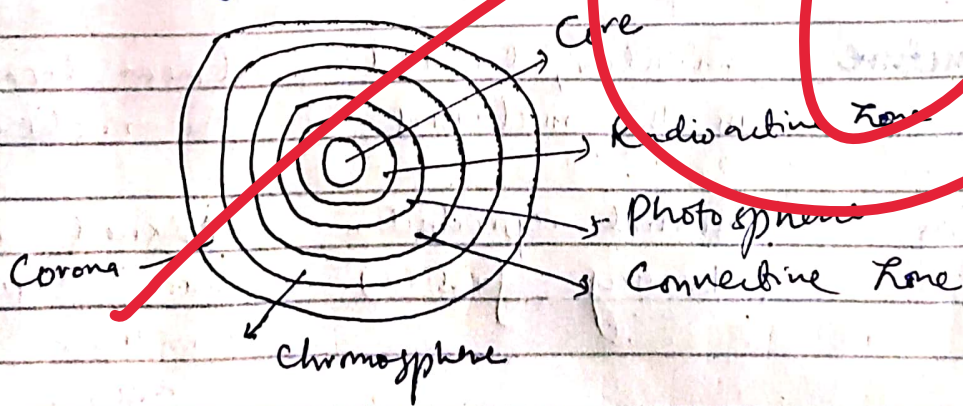 Core
Radioactive Zone
Photosphere
Convective Zone
Corona
Chromosphere